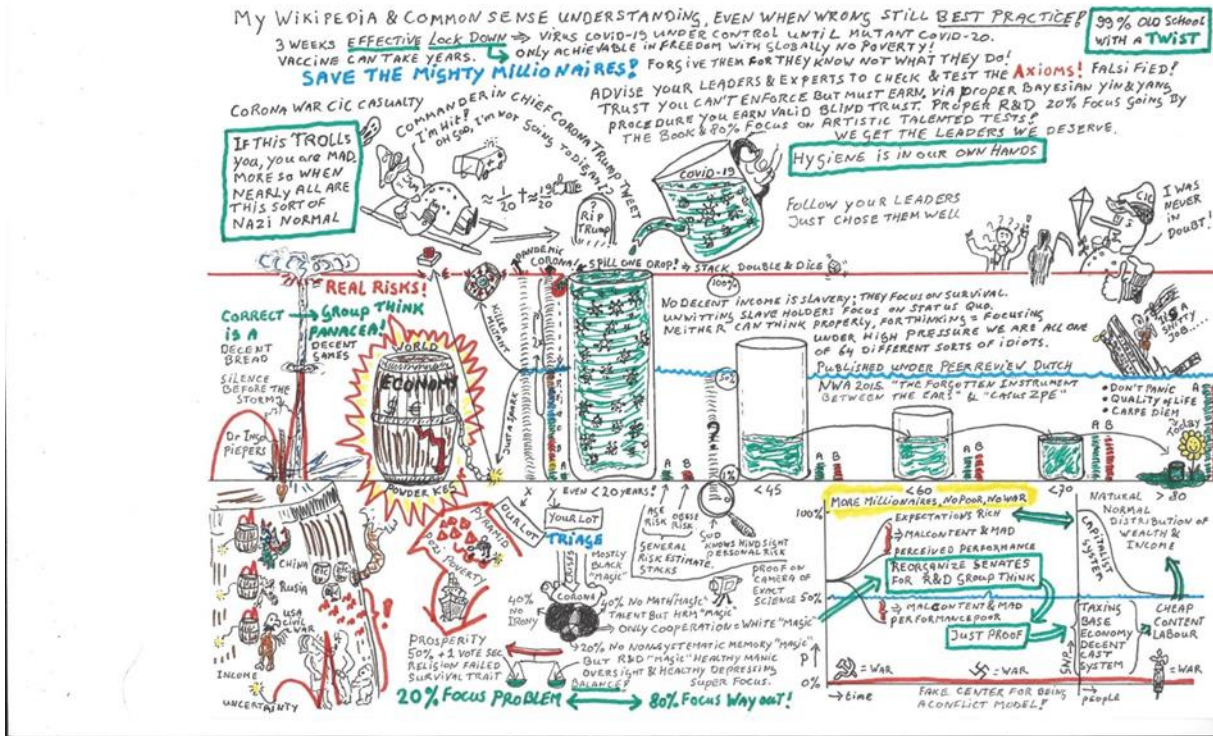 MY WIKIPEDIA & COMMON SENSE UNDERSTANDING, EVEN WHEN WRONG STILL BEST PRACTICE!
99% OLD SCHOOL
WITH A TWIST
3 WEEKS EFFECTIVE LOCK DOWN ⇒ VIRUS COVID-19 UNDER CONTROL UNTIL MUTANT COVID-20.
VACCINE CAN TAKE YEARS. ONLY ACHIEVABLE IN FREEDOM WITH GLOBALLY NO POVERTY!
SAVE THE MIGHTY MILLIONAIRES! FORGIVE THEM FOR THEY KNOW NOT WHAT THEY DO!
ADVISE YOUR LEADERS & EXPERTS TO CHECK & TEST THE AXIOMS! FALSIFIED!
TRUST YOU CAN'T ENFORCE BUT MUST EARN, VIA PROPER BAYESIAN YIN & YANG
PROCEDURE YOU EARN VALID BLIND TRUST. PROPER R&D 20% FOCUS GOING BY
THE BOOK & 80% FOCUS ON ARTISTIC TALENTED TESTS!
WE GET THE LEADERS WE DESERVE.
HYGIENE IS IN OUR OWN HANDS
CORONA WAR CIC CASUALTY
IF THIS TROLLS
YOU, YOU ARE MAD.
MORE SO WHEN
NEARLY ALL ARE
THIS SORT OF
NAZI NORMAL
COMMANDER IN CHIEF CORONA TRUMP TWEET
I'M HIT!
OH GOD, I'M NOT GOING TO DIE AM I?
≈ 1/20 † ≈ 19/20
?
RIP
TRUMP
COVID-19
FOLLOW YOUR LEADERS
JUST CHOSE THEM WELL
CIC
I WAS
NEVER
IN
DOUBT!
PANDEMIC
CORONA!
SPILL ONE DROP! ⇒ STACK, DOUBLE & DICE
REAL RISKS!
CORRECT → GROUP THINK
IS A PANACEA!
DECENT DECENT
BREAD GAMES
SILENCE
BEFORE THE
STORM
DR INGO
PIEPERS
WORLD
ECONOMY
POWDER KEG
KILLER
MUTANT
JUST A SPARK
2X
100%
50%
1%
NO DECENT INCOME IS SLAVERY; THEY FOCUS ON SURVIVAL.
UNWITTING SLAVE HOLDERS FOCUS ON STATUS QUO.
NEITHER CAN THINK PROPERLY, FOR THINKING = FOCUSING
UNDER HIGH PRESSURE WE ARE ALL ONE
OF 64 DIFFERENT SORTS OF IDIOTS.
PUBLISHED UNDER PEER REVIEW DUTCH
NWA 2015. "THE FORGOTTEN INSTRUMENT
BETWEEN THE EARS" & "CASUS ZPE"
A
SHITTY
JOB.....
• DON'T PANIC
• QUALITY OF LIFE
• CARPE DIEM
TODAY
A B
A B
A B
A B
A B
X Y EVEN <20 YEARS!
<45
<60
<70
> 80
OUR LOT
YOUR LOT
TRIAGE
PYRAMID
POZI POVERTY
AGE
RISK
OBESE
RISK
GOD
KNOWS HINDSIGHT
PERSONAL RISK
GENERAL
RISK ESTIMATE
STACKS
PROOF ON
CAMERA OF
EXACT
SCIENCE
CRISES
MOSTLY
BLACK
"MAGIC"
CORONA
40%
NO
IRONY
40% NO MATH "MAGIC"
TALENT BUT HRM "MAGIC"
→ ONLY COOPERATION = WHITE "MAGIC"
20% NO NONSYSTEMATIC MEMORY "MAGIC"
BUT R&D "MAGIC" HEALTHY MANIC
OVERSIGHT & HEALTHY DEPRESSING
SUPER FOCUS.
BALANCE?
PROSPERITY
50% + 1 VOTE SEC
RELIGION FAILED
SURVIVAL TRAIT
20% FOCUS PROBLEM
80% FOCUS WAY OUT!
CHINA
RUSSIA
USA
CIVIL
WAR
INCOME
UNCERTAINTY
MORE MILLIONAIRES, NO POOR, NO WAR
100%
50%
P
0%
EXPECTATIONS RICH
⇒ MALCONTENT & MAD
PERCEIVED PERFORMANCE
REORGANIZE SENATES
FOR R&D GROUP THINK
⇒ MALCONTENT & MAD
PERFORMANCE POOR
JUST PROOF
= WAR
= WAR
= WAR
→ TIME
FAKE CENTER FOR BEING
A CONFLICT MODEL!
→ PEOPLE
CAPITALIST
SYSTEM
SNP ⇒
TAXING
BASE
ECONOMY
DECENT
CAST
SYSTEM
NATURAL
NORMAL
DISTRIBUTION OF
WEALTH &
INCOME
CHEAP
CONTENT
LABOUR